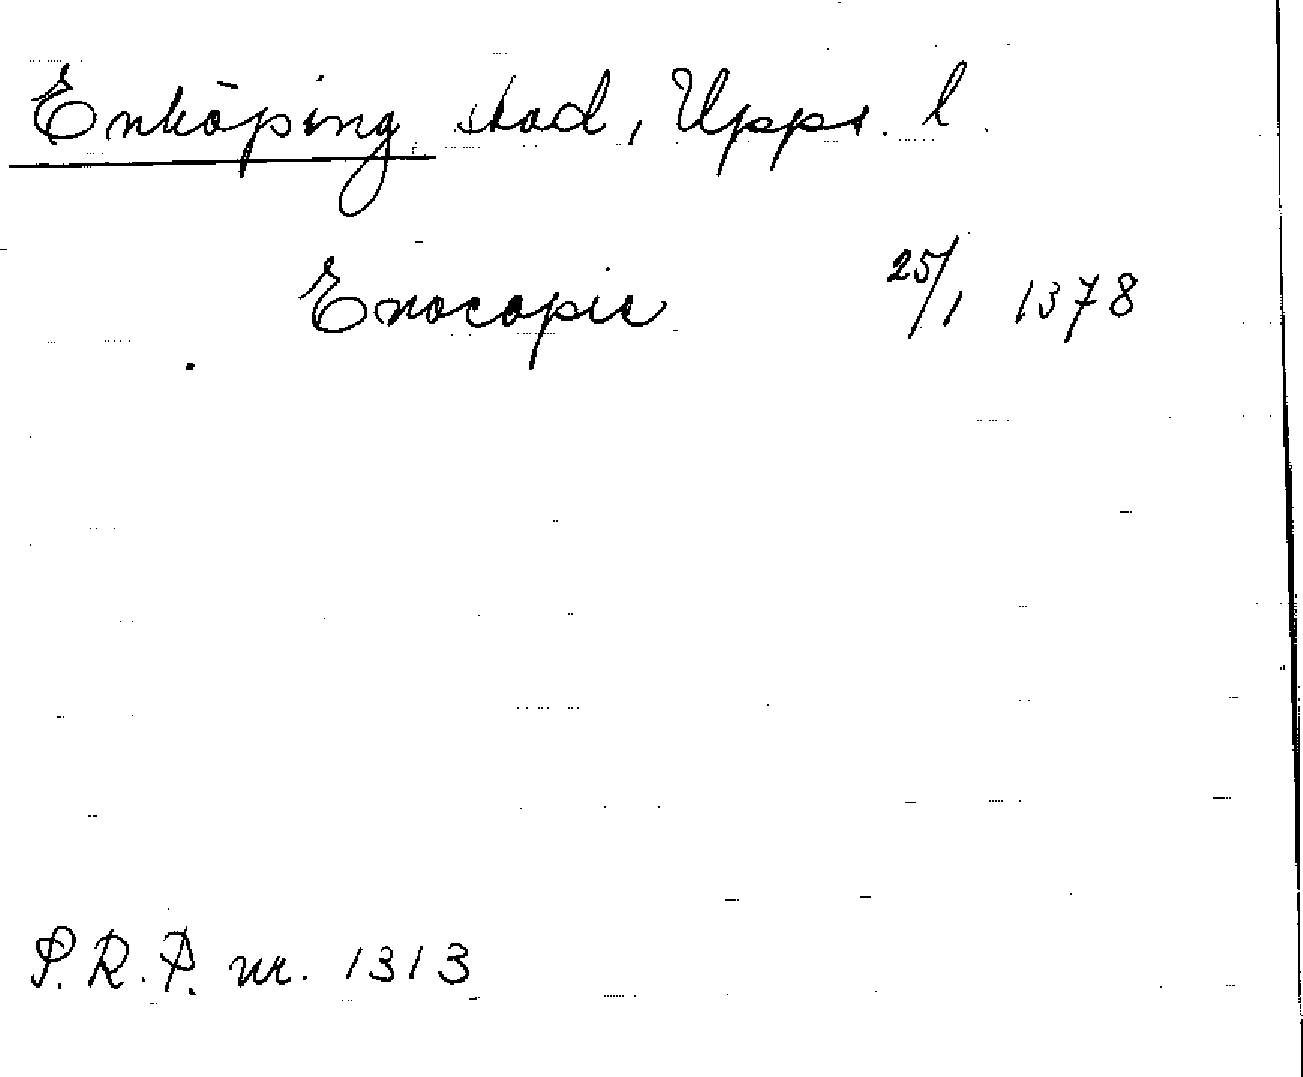 Enköping stad, Upps. l.
Enocopie 25/1 1378
S.R.P. nr. 1313